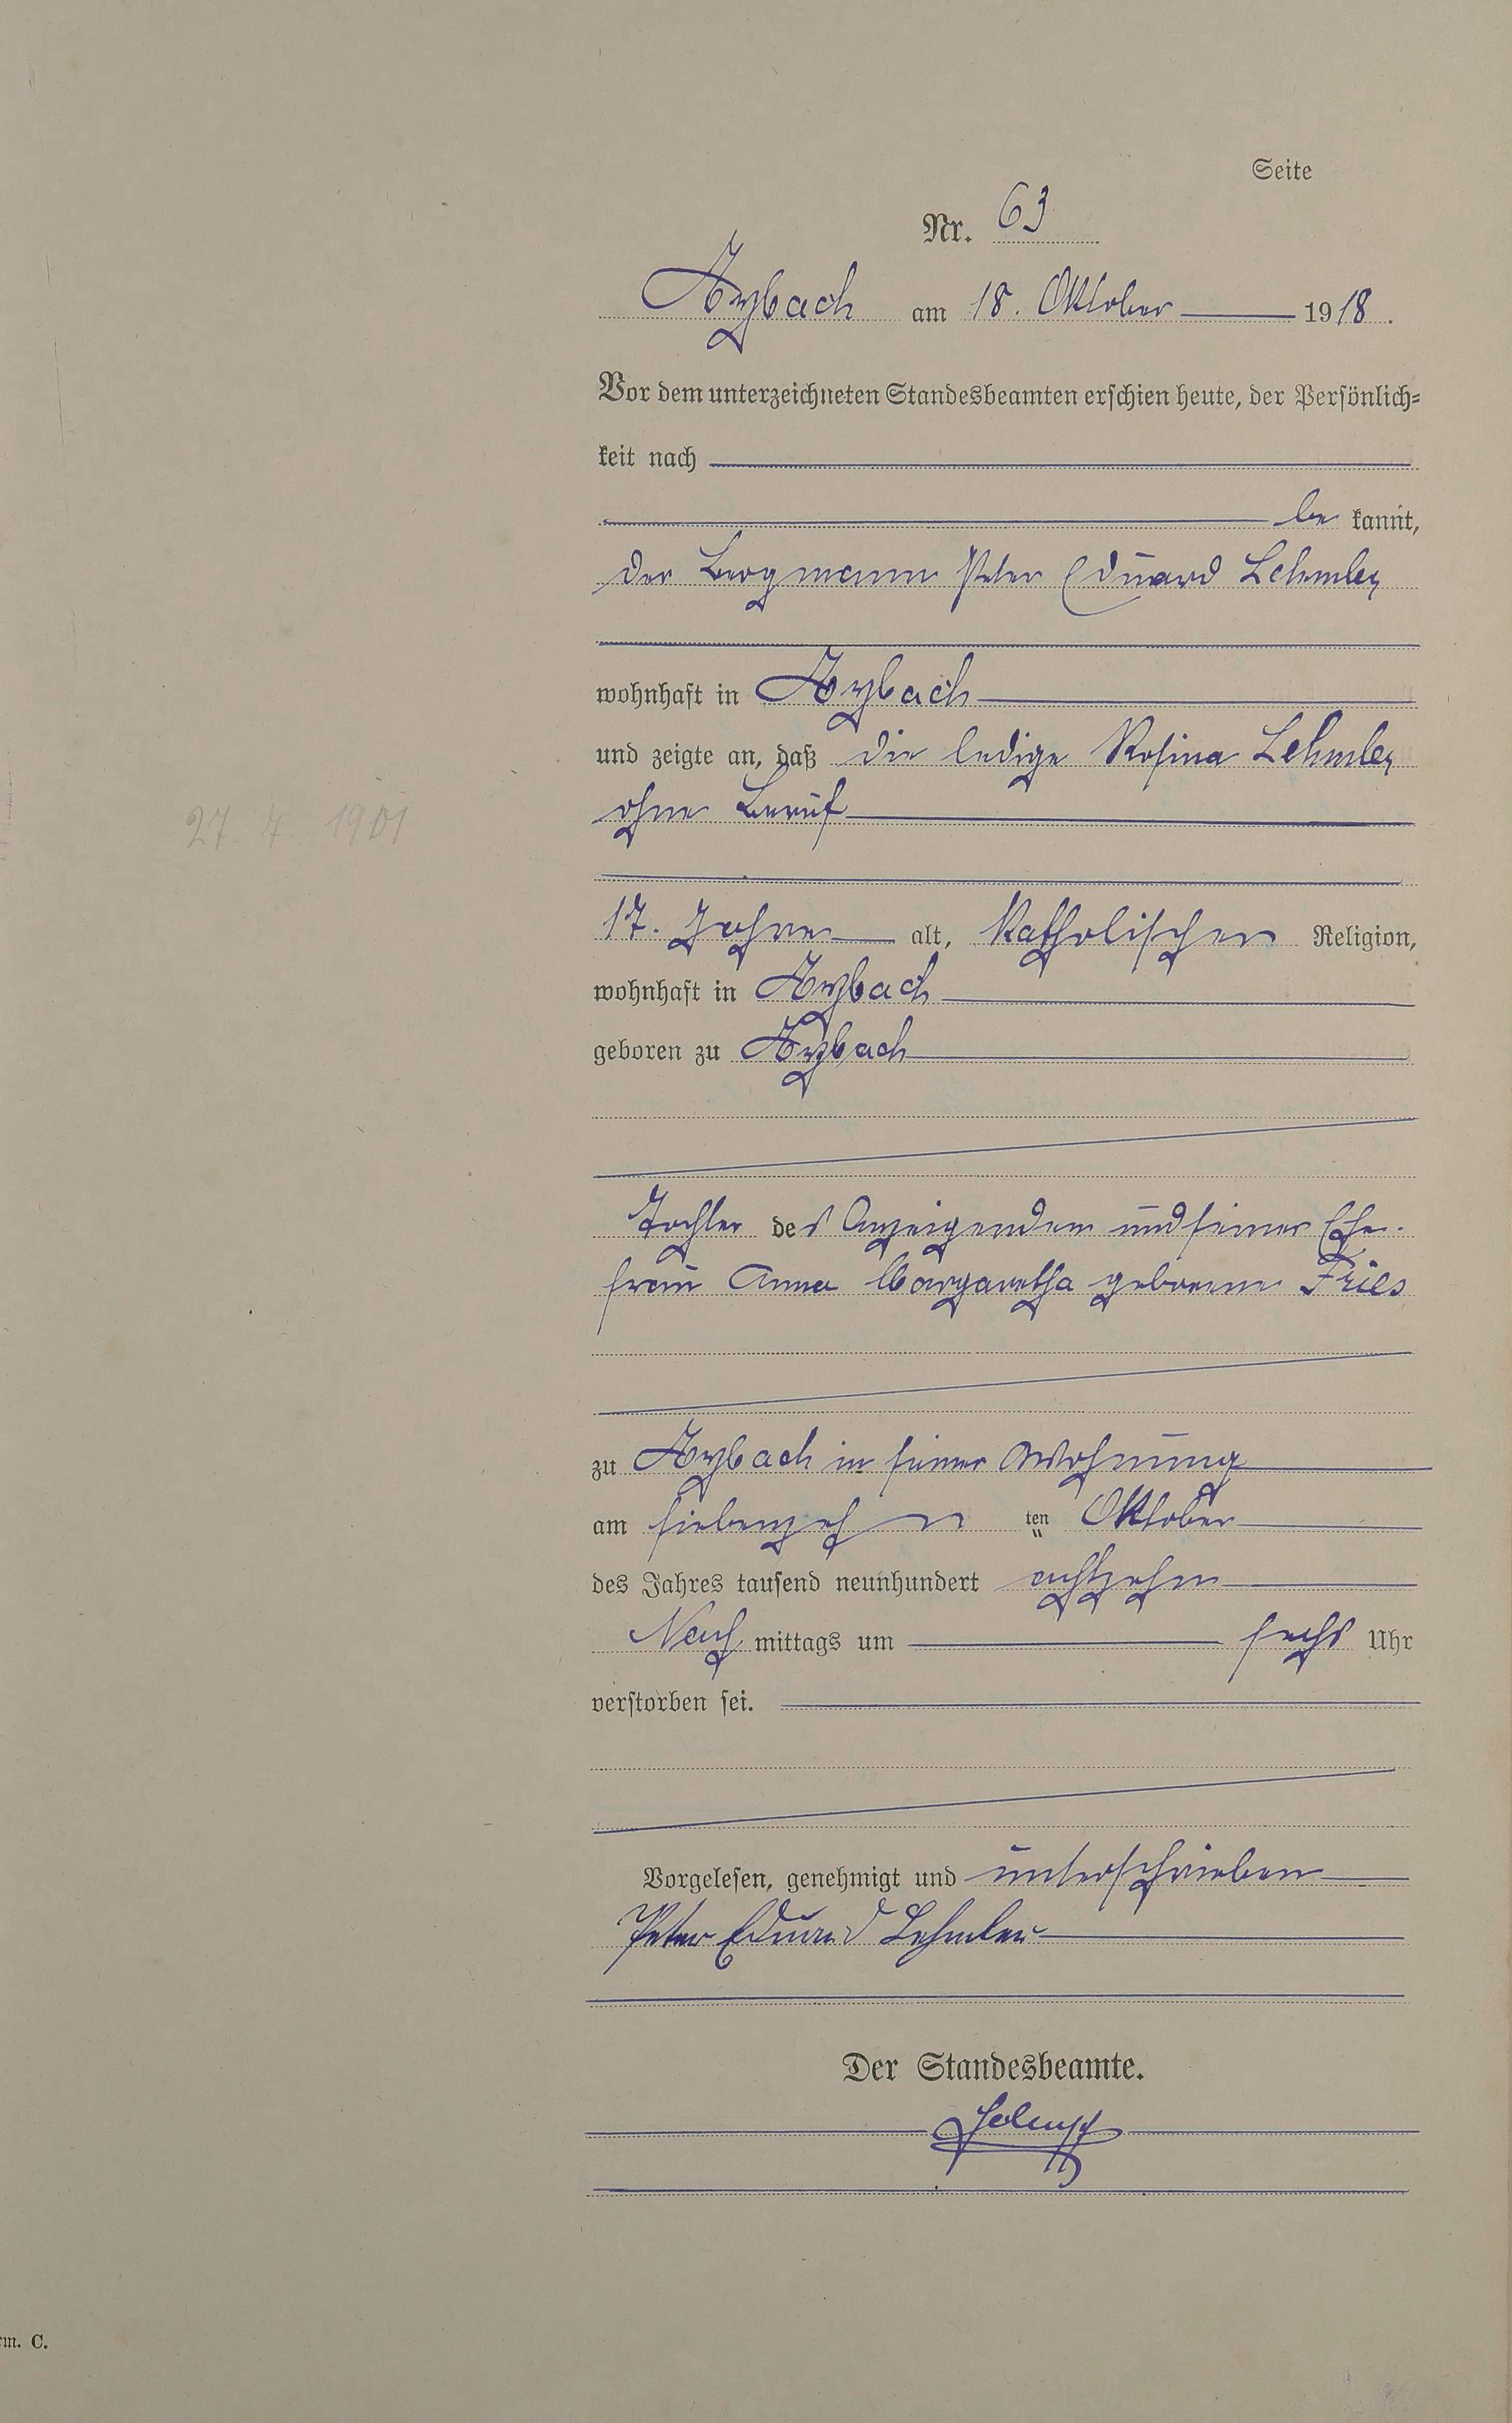 Seite
Nr. 63
Arzbach am 18. Oktober 1918.
Vor dem unterzeichneten Standesbeamten erschien heute, der Persönlich=
keit nach
be kannt,
der Bergmann Peter Eduard Lehmler
wohnhaft in Arzbach
und zeigte an, daß die ledige Rosina Lehmler
ohne Beruf
27. 4. 1901
17. Jahre alt, katholischer Religion,
wohnhaft in Arzbach
geboren zu Arzbach
Tochter des Anzeigenden und seiner Ehe-
frau Anna Margaretha geborene Fries
zu Arzbach in seiner Wohnung
am siebenzehn ten Oktober
des Jahres tausend neunhundert achtzehn
Nach mittags um sechs Uhr
verstorben sei.
Vorgelesen, genehmigt und unterschrieben
Peter Eduard Lehmler
Der Standesbeamte.
rm. C.